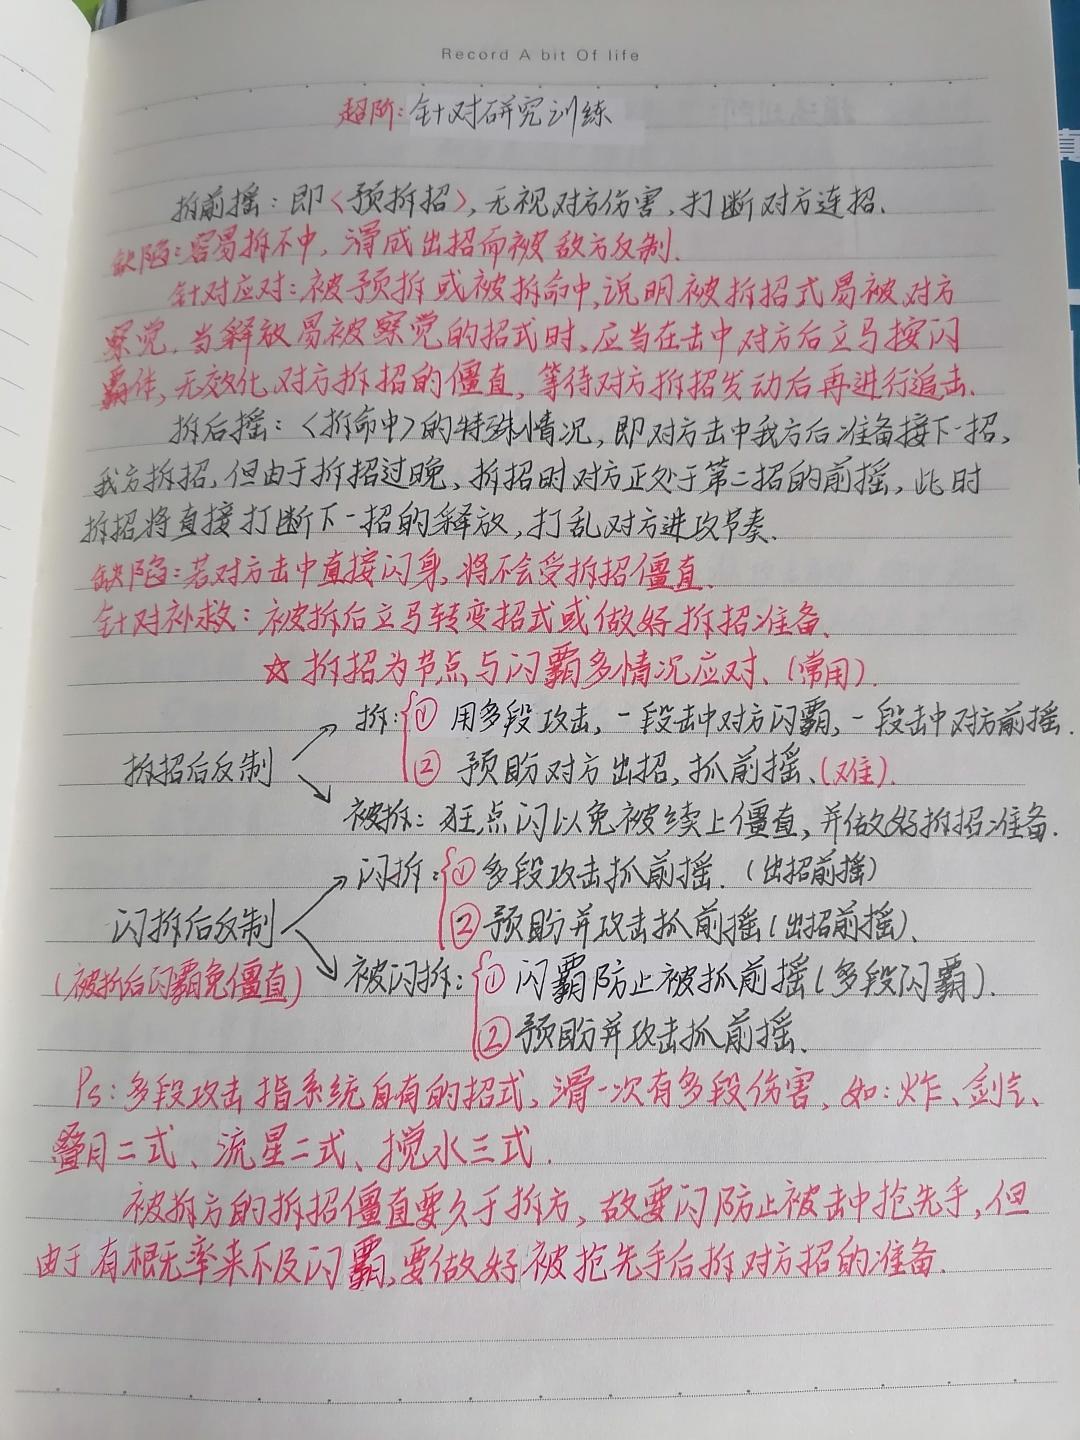 Record A bit Of life
超阶:针对研究训练
拆前摇:即〈预拆招〉,无视对方伤害,打断对方连招.
缺陷:容易拆不中,滑成出招而被敌方反制.
针对应对:被预拆或被拆命中,说明被拆招式易被对方
察觉.当释放易被察觉的招式时,应当在击中对方后立马按闪
霸体,无效化对方拆招的僵直,等待对方拆招发动后再进行追击.
拆后摇:〈拆命中〉的特殊情况,即对方击中我方后准备接下一招,
我方拆招,但由于拆招过晚,拆招时对方正处于第二招的前摇,此时
拆招将直接打断下一招的释放,打乱对方进攻节奏.
缺陷:若对方击中直接闪身,将不会受拆招僵直.
针对补救:被拆后立马转变招式或做好拆招准备.
☆拆招为节点与闪霸多情况应对、(常用).
拆:①用多段攻击,一段击中对方闪霸,一段击中对方前摇.
拆招后反制
②预盼对方出招,抓前摇、(难).
被拆:狂点闪以免被续上僵直,并做好拆招准备.
闪拆:①多段攻击抓前摇.(出招前摇)
闪拆后反制
②预盼并攻击抓前摇(出招前摇)、
(被拆后闪霸免僵直)
被闪拆:①闪霸防止被抓前摇(多段闪霸).
②预盼并攻击抓前摇.
Ps:多段攻击指系统自有的招式,滑一次有多段伤害,如:炸、剑气、
叠月二式、流星二式、搅水三式.
被拆方的拆招僵直要久于拆方,故要闪防止被击中抢先手,但
由于有根无率来不及闪霸,要做好被抢先手后拆对方招的准备.